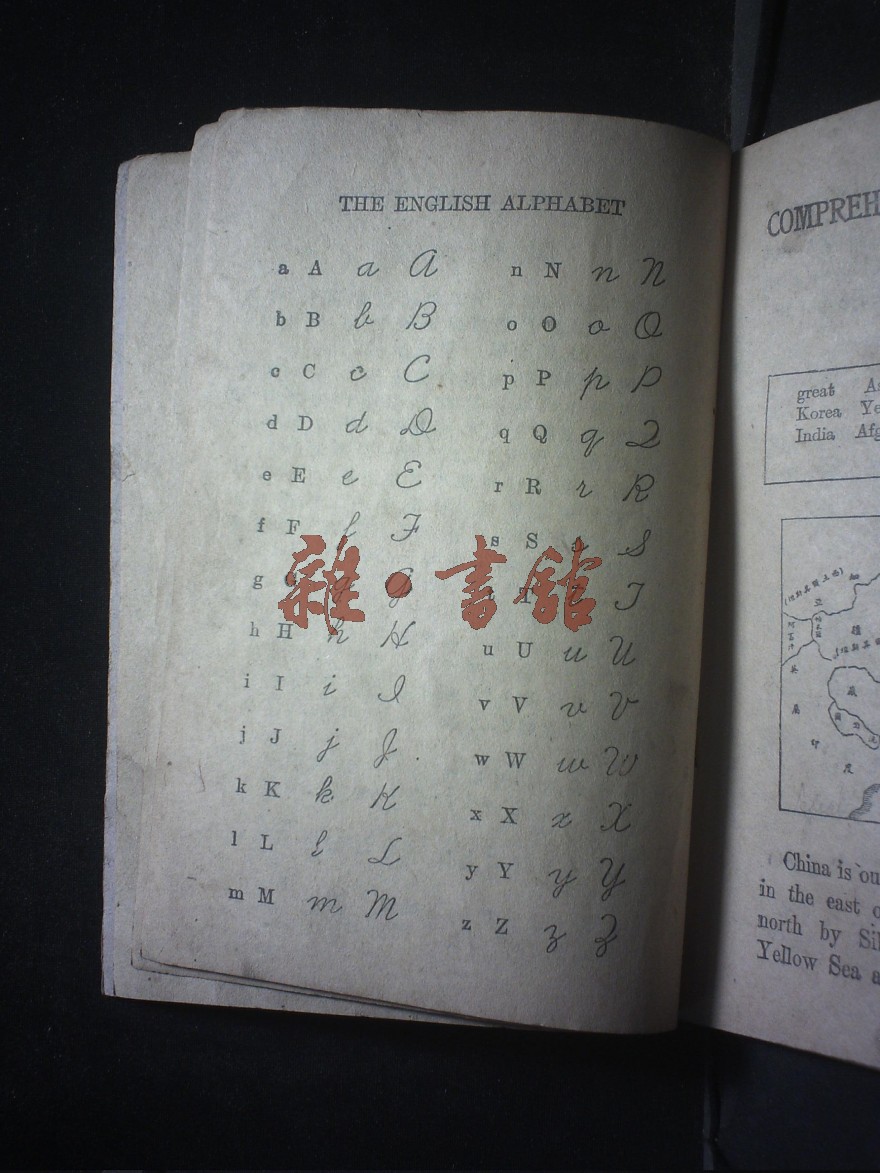 THE ENGLISH ALPHABET
a A a A
b B b B
c C c C
d D d D
e E e E
f F f F
g G g G
h H h H
i I i I
j J j J
k K k K
l L l L
m M m M
n N n N
o O o O
p P p P
q Q q Q
r R r R
s S s S
T t T
u U u U
v V v V
w W w W
x X x X
y Y y Y
z Z z Z
雜·書館
COMPREH
great As
Korea Ye
India Afg
英
屬
印
度
疆
藏
China is ou
in the east o
north by Sil
Yellow Sea a